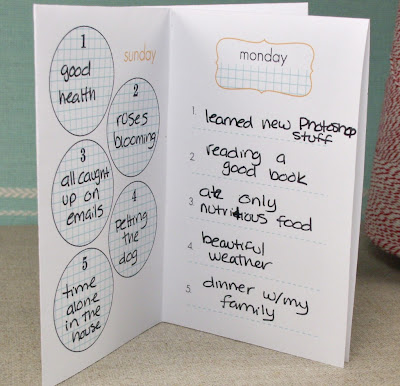 sunday
1
good
health
2
roses
blooming
3
all caught
up on
emails
4
petting
the
dog
5
time
alone
in the
house
monday
1. learned new Photoshop
stuff
2. reading a
good book
3. ate only
nutritious food
4. beautiful
weather
5. dinner w/my
family